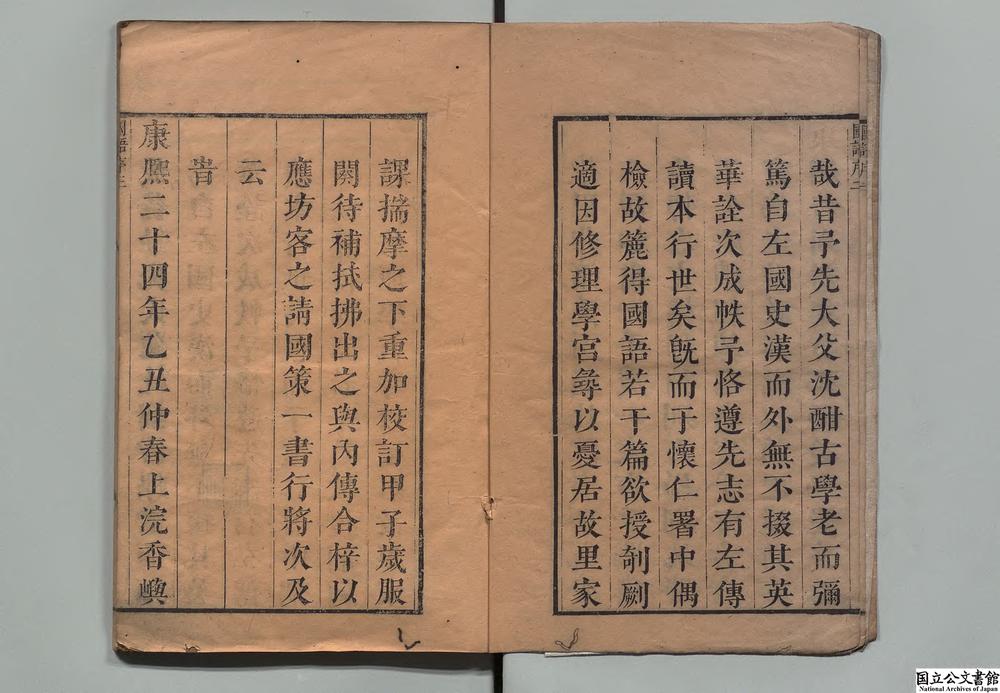 哉昔予先大父沈酣古學老而彌
篤自左國史漢而外無不掇其英
華詮次成帙予恪遵先志有左傳
讀本行世矣旣而于懷仁署中偶
檢故簏得國語若干篇欲授剞劂
適因修理學宮㝷以憂居故里家
國語序二
課揣摩之下重加校訂甲子歲服
闋待補拭拂出之與內傳合梓以
應坊客之請國策一書行將次及
云
旹
康熈二十四年乙丑仲春上浣香嶼
国立公文書館
National Archives of Japan